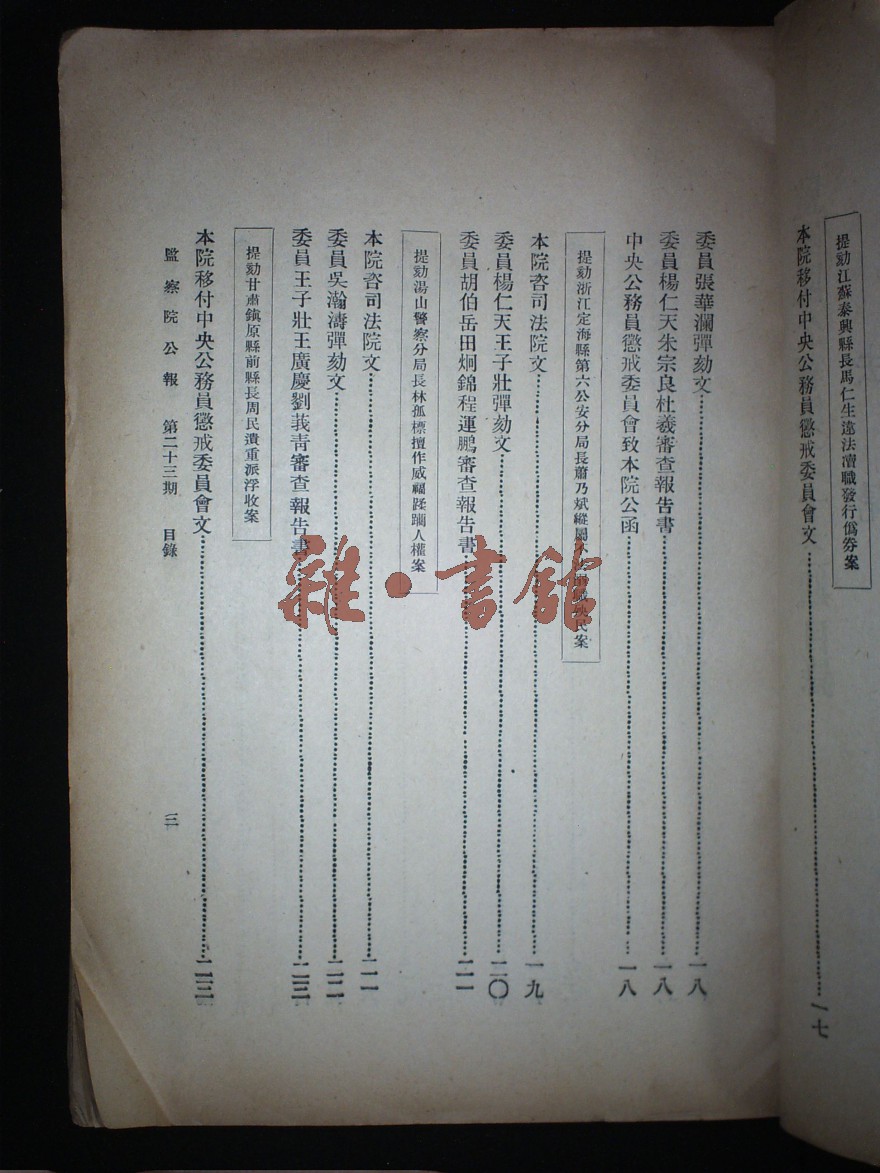 提劾江蘇泰興縣長馬仁生違法瀆職發行僞券案
本院移付中央公務員懲戒委員會文 一七
委員張華瀾彈劾文 一八
委員楊仁天朱宗良杜羲審查報告書 一八
中央公務員懲戒委員會致本院公函 一八
提劾浙江定海縣第六公安分局長蕭乃斌縱屬 民案
本院咨司法院文 一九
委員楊仁天王子壯彈劾文 二〇
委員胡伯岳田炯錦程運鵬審查報告書 二一
提劾湯山警察分局長林孤標擅作威福蹂躪人權案
本院咨司法院文 二一
委員吳瀚濤彈劾文 二二
委員王子壯王廣慶劉莪青審查報告書 二三
提劾甘肅鎭原縣前縣長周民濆重派浮收案
本院移付中央公務員懲戒委員會文 二三
監察院公報 第二十三期 目錄 三
雜·書館